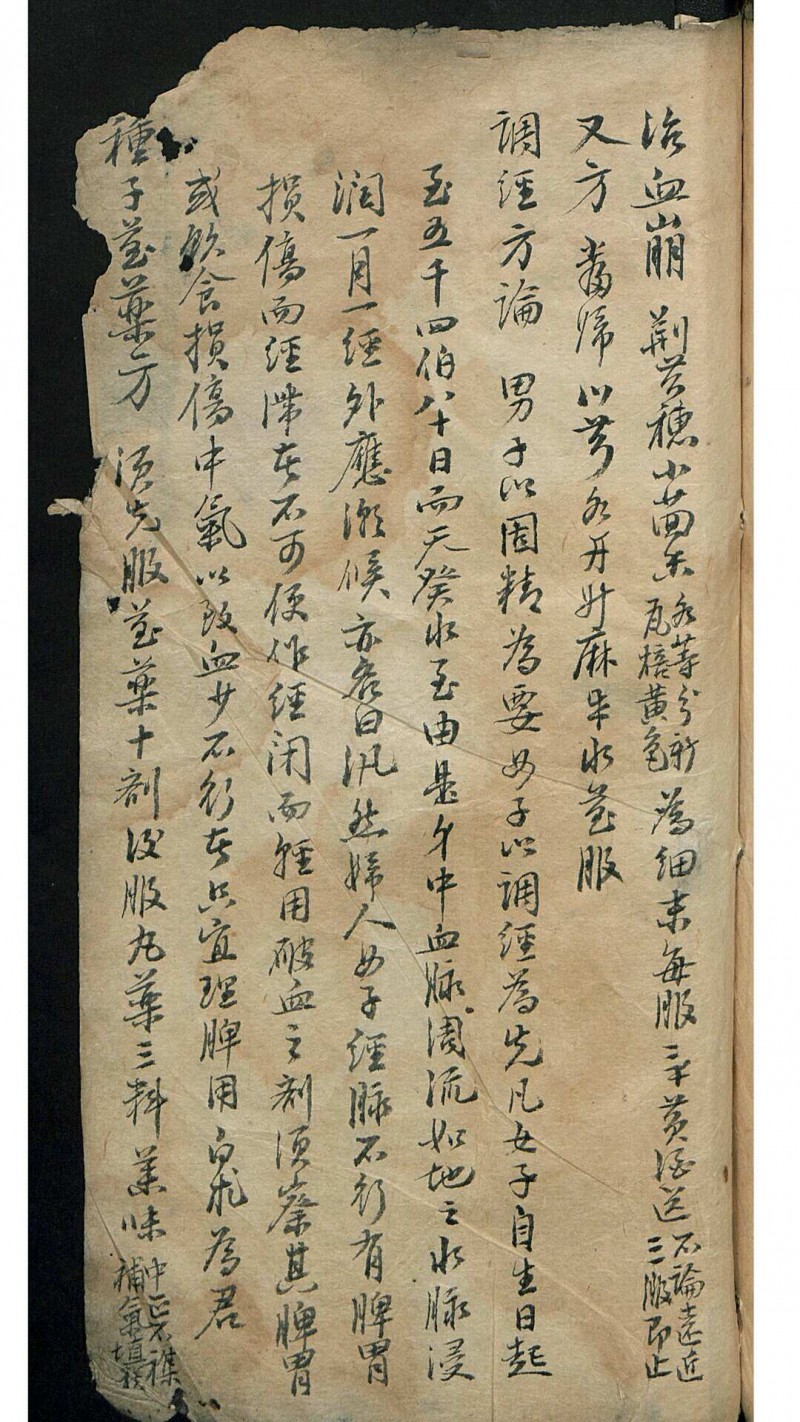 治血崩 荆芥穗 小茴香 各等分新瓦焙黄色 為細末每服三錢黄酒送 不論遠近三服即止
又方 當歸 川芎 各 升麻 水煎服
調經方論 男子以固精為要女子以調經為先凡女子自生日起
至五千四伯八十日而天癸水至由是身中血脉周流如地之水脉浸
润一月一經外應潮候亦名曰汛然婦人女子經脉不行有脾胃
損傷而經滯者不可便作經闭而輕用破血之剤須察其脾胃
或飲食損傷中氣以致血少不行者只宜理脾用白术為君
種子煎藥方 須先服煎藥十剤後服丸藥三料 藥味 中正不襍補氣填